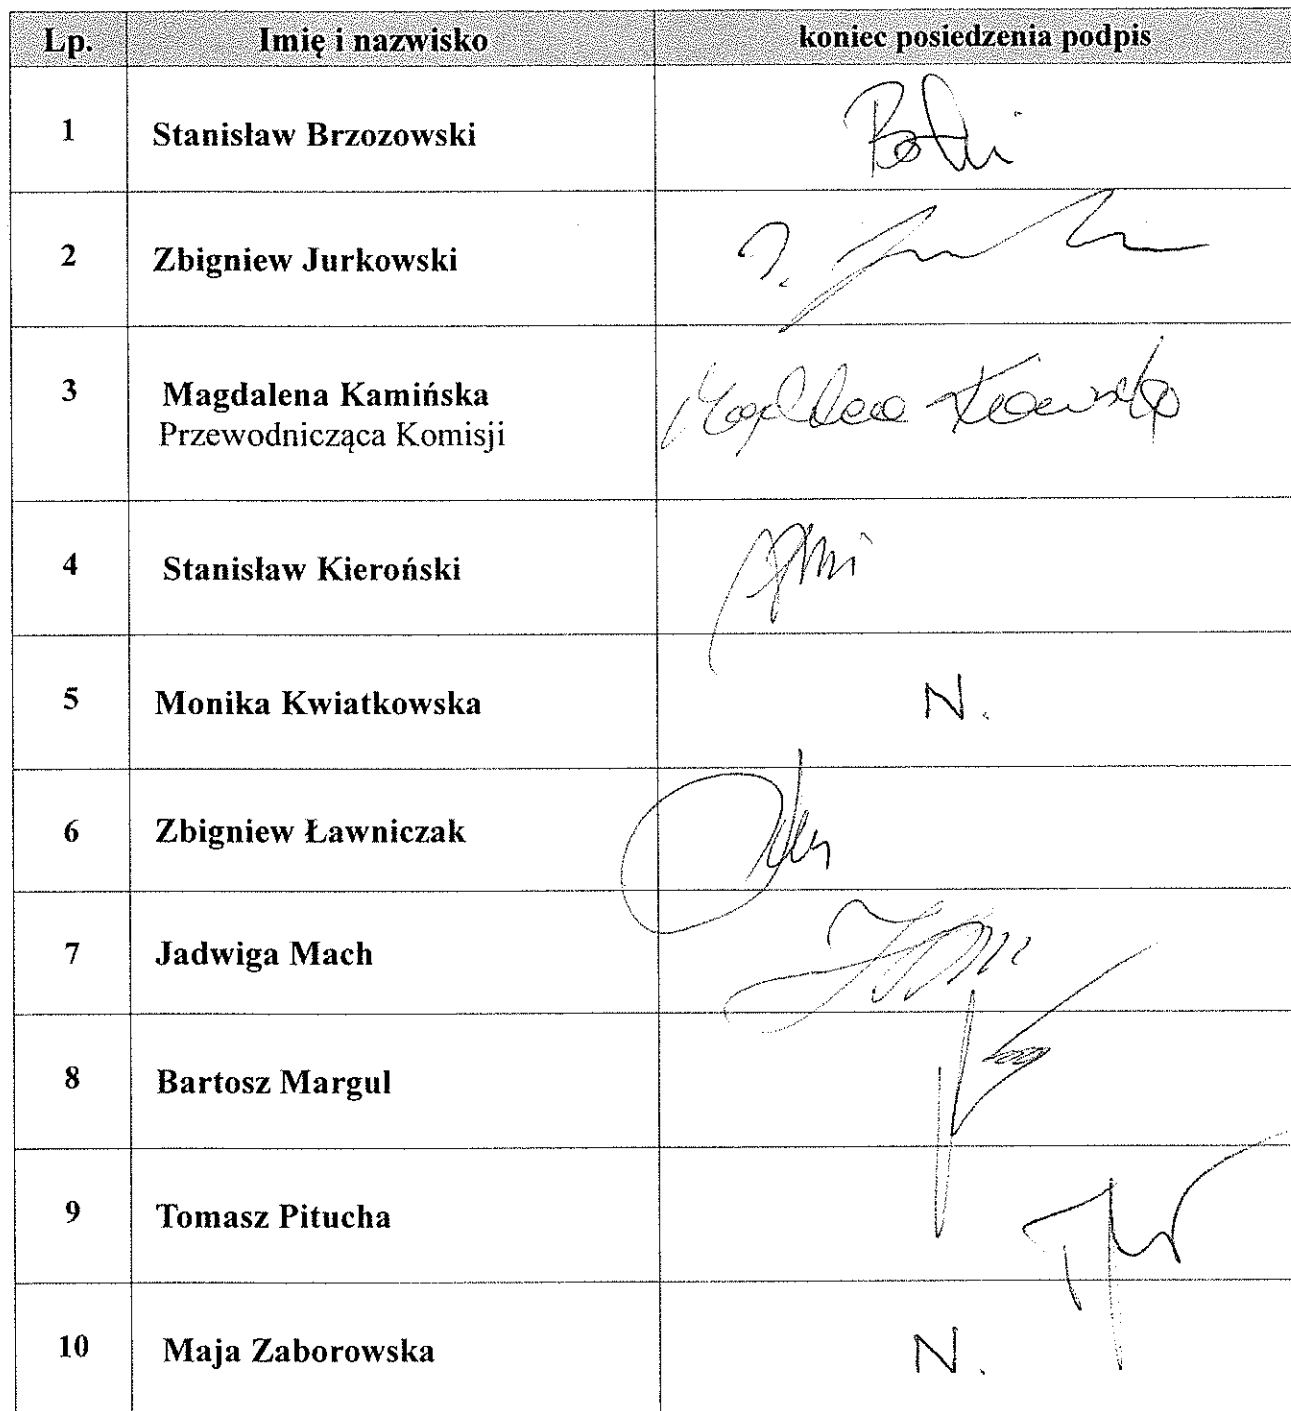 Lp. Imię i nazwisko koniec posiedzenia podpis
1 Stanisław Brzozowski
2 Zbigniew Jurkowski
3 Magdalena Kamińska
Przewodnicząca Komisji
4 Stanisław Kieroński
5 Monika Kwiatkowska N.
6 Zbigniew Ławniczak
7 Jadwiga Mach
8 Bartosz Margul
9 Tomasz Pitucha
10 Maja Zaborowska N.